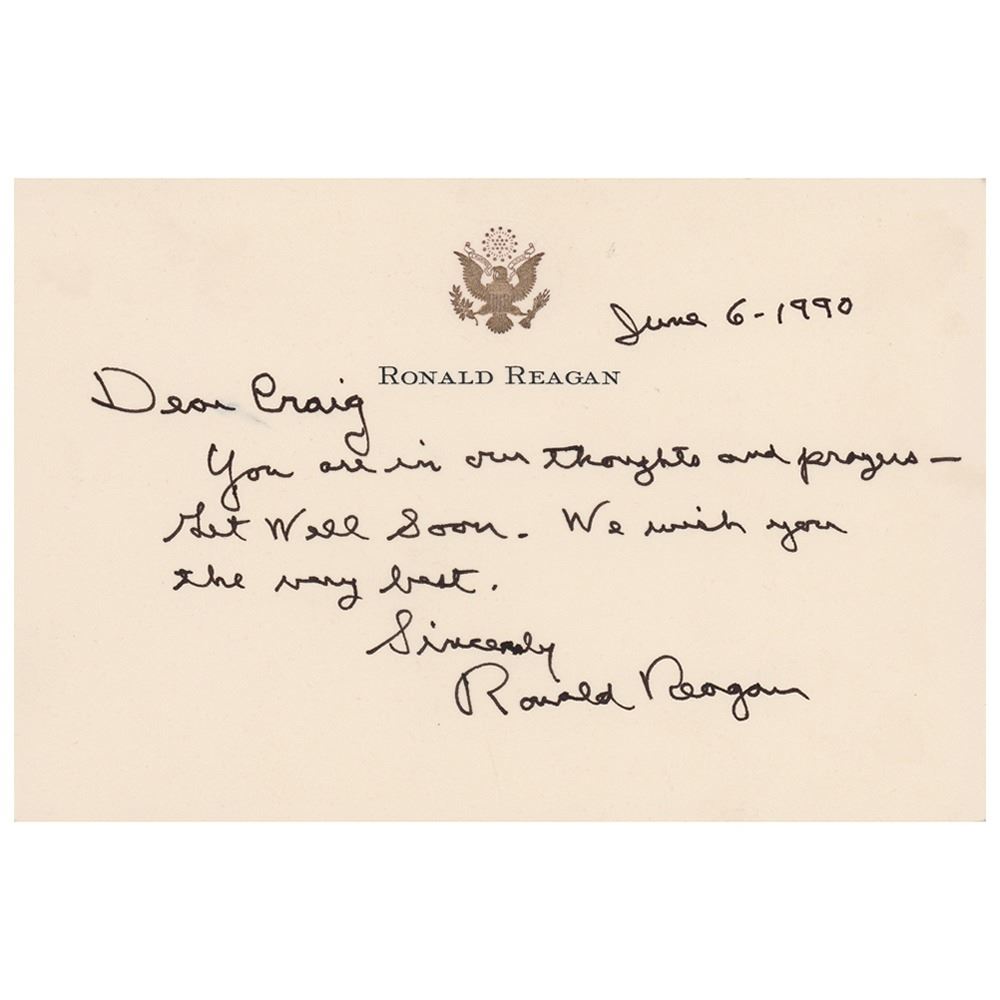 June 6-1990
RONALD REAGAN
Dear Craig
You are in our thoughts and prayers —
Get Well Soon. We wish you
the very best.
Sincerely
Ronald Reagan